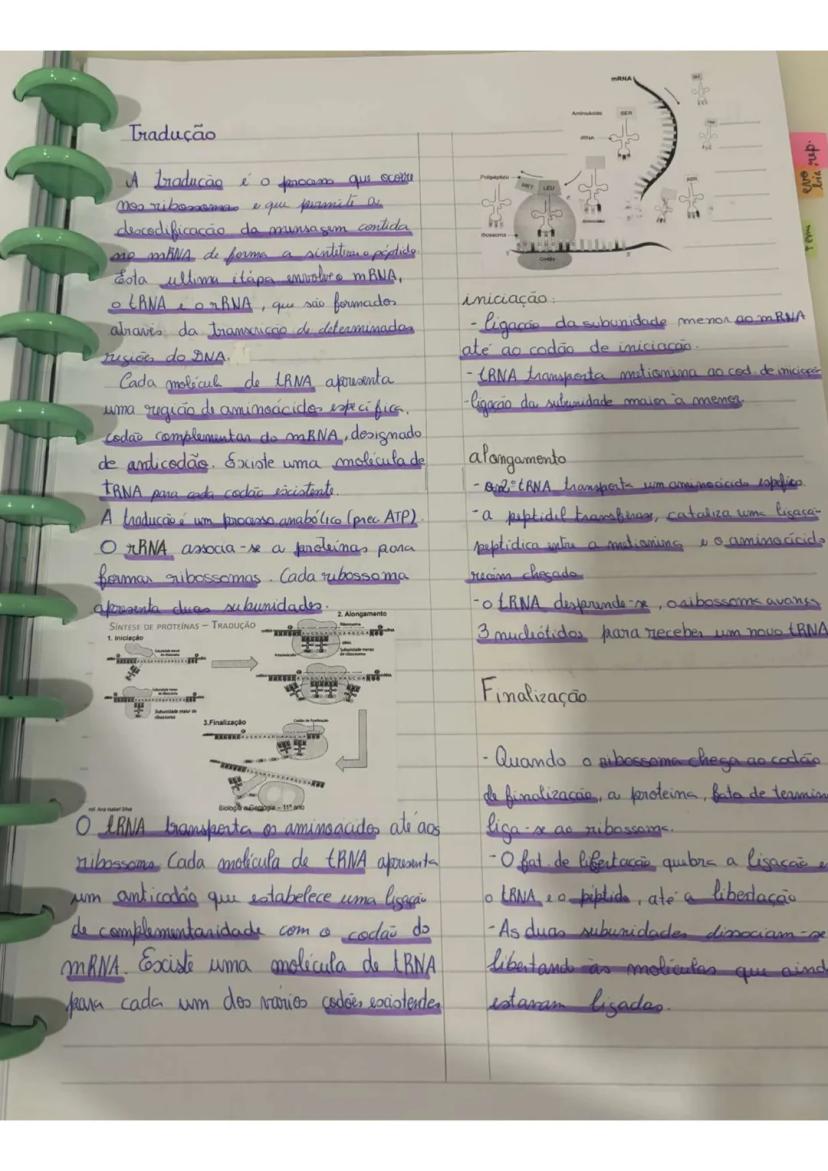 Tradução
A tradução é o processo que ocorre
nos ribossomas e que permite a
descodificação da mensagem contida
no mRNA de forma a sintetizar o péptido
Esta ultima etapa envolve o mRNA,
o tRNA e o rRNA, que são formados
através da transcrição de determinadas
regiões do DNA.
Cada molécul de tRNA apresenta
uma região de aminoácidos especifica,
codão complementar do mRNA, designado
de anticodão. Existe uma molécula de
tRNA para cada codão existente.
A tradução é um processo anabólico (prec ATP)
O rRNA associa-se a proteinas para
formar ribossomas. Cada ribossoma
apresenta duas subunidades.
SÍNTESE DE PROTEÍNAS – TRADUÇÃO
1. Iniciação
2. Alongamento
3.Finalização
Codão de finalização
Subunidade maior do
ribossoma
Biologia e Geologia – 11º ano
O tRNA transporta os aminoácidos até aos
ribossoma Cada molécula de tRNA apresenta
um anticodão que estabelece uma ligação
de complementaridade com o codão do
mRNA. Existe uma molécula de tRNA
para cada um dos vários codões existentes
mRNA
Aminoácido
SER
tRNA
Polipéptido
MET
LEU
Ribossoma
5'
3'
Codão
iniciação:
- ligação da subunidade menor ao mRNA
até ao codão de iniciação.
- tRNA transporta metionina ao cod. de iniciação
- ligação da subunidade maior à menor
alongamento
- 2º tRNA transporta um aminoácido espefico
- a peptidil transferase, cataliza uma ligaçã
peptidica entre a metionina e o aminoácido
recém chegado
- o tRNA desprende-se, o ribossoma avança
3 nucleótidos para receber um novo tRNA
Finalização
- Quando o ribossoma chega ao codão
de finalização, a proteína, fato de termin
liga-se ao ribossoma.
- O fat. de libertação quebra a ligação e
o tRNA e o péptido, até a libertação
- As duas subunidades dissociam-se
libertando as moléculas que aind
estavam ligadas.